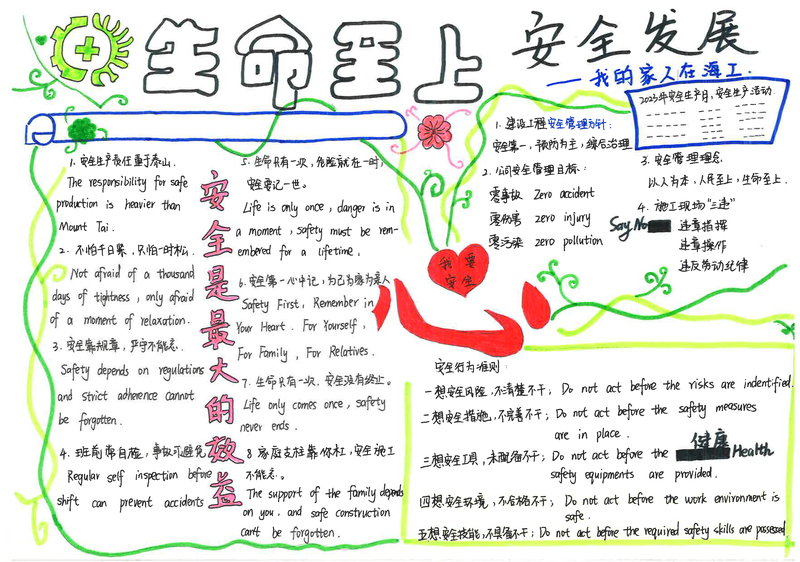 生命至上
安全发展
——我的家人在海工.
2023年安全生产月,安全生产活动
1. 安全生产责任重于泰山.
The responsibility for safe
production is heavier than
Mount Tai.
2. 不怕千日累,只怕一时松.
Not afraid of a thousand
days of tightness, only afraid
of a moment of relaxation.
3. 安全靠规章,严守不能忘.
Safety depends on regulations
and strict adherence cannot
be forgotten.
4. 班前常自检,事故可避免
Regular self inspection before
shift can prevent accidents
安全是最大的效益
5. 生命只有一次,危险就在一时,
安全要记一世.
Life is only once, danger is in
a moment, safety must be rem-
embered for a lifetime.
6. 安全第一心中记,为己为家为亲人
Safety First, Remember in
Your Heart. For Yourself,
For Family, For Relatives.
7. 生命只有一次,安全没有终止.
Life only comes once, safety
never ends.
8 家庭支柱靠你杠,安全施工
不能忘.
The support of the family depends
on you. and safe construction
can't be forgotten.
我要
安全
1. 建设工程安全管理方针:
安全第一,预防为主,综合治理
2. 公司安全管理目标:
零事故 Zero accident
零伤害 zero injury
零污染 zero pollution
3. 安全管理理念.
以人为本,人民至上,生命至上.
4. 施工现场"三违"
Say No
违章指挥
违章操作
违反劳动纪律
安全行为准则:
一想安全风险,不清楚不干; Do not act before the risks are indentified.
二想安全措施,不完善不干; Do not act before the safety measures
are in place.
健康
三想安全工具,未配备不干; Do not act before the Health
safety equipments are provided.
四想安全环境,不合格不干; Do not act before the work environment is
safe.
五想安全技能,不具备不干; Do not act before the required safety skills are possessed